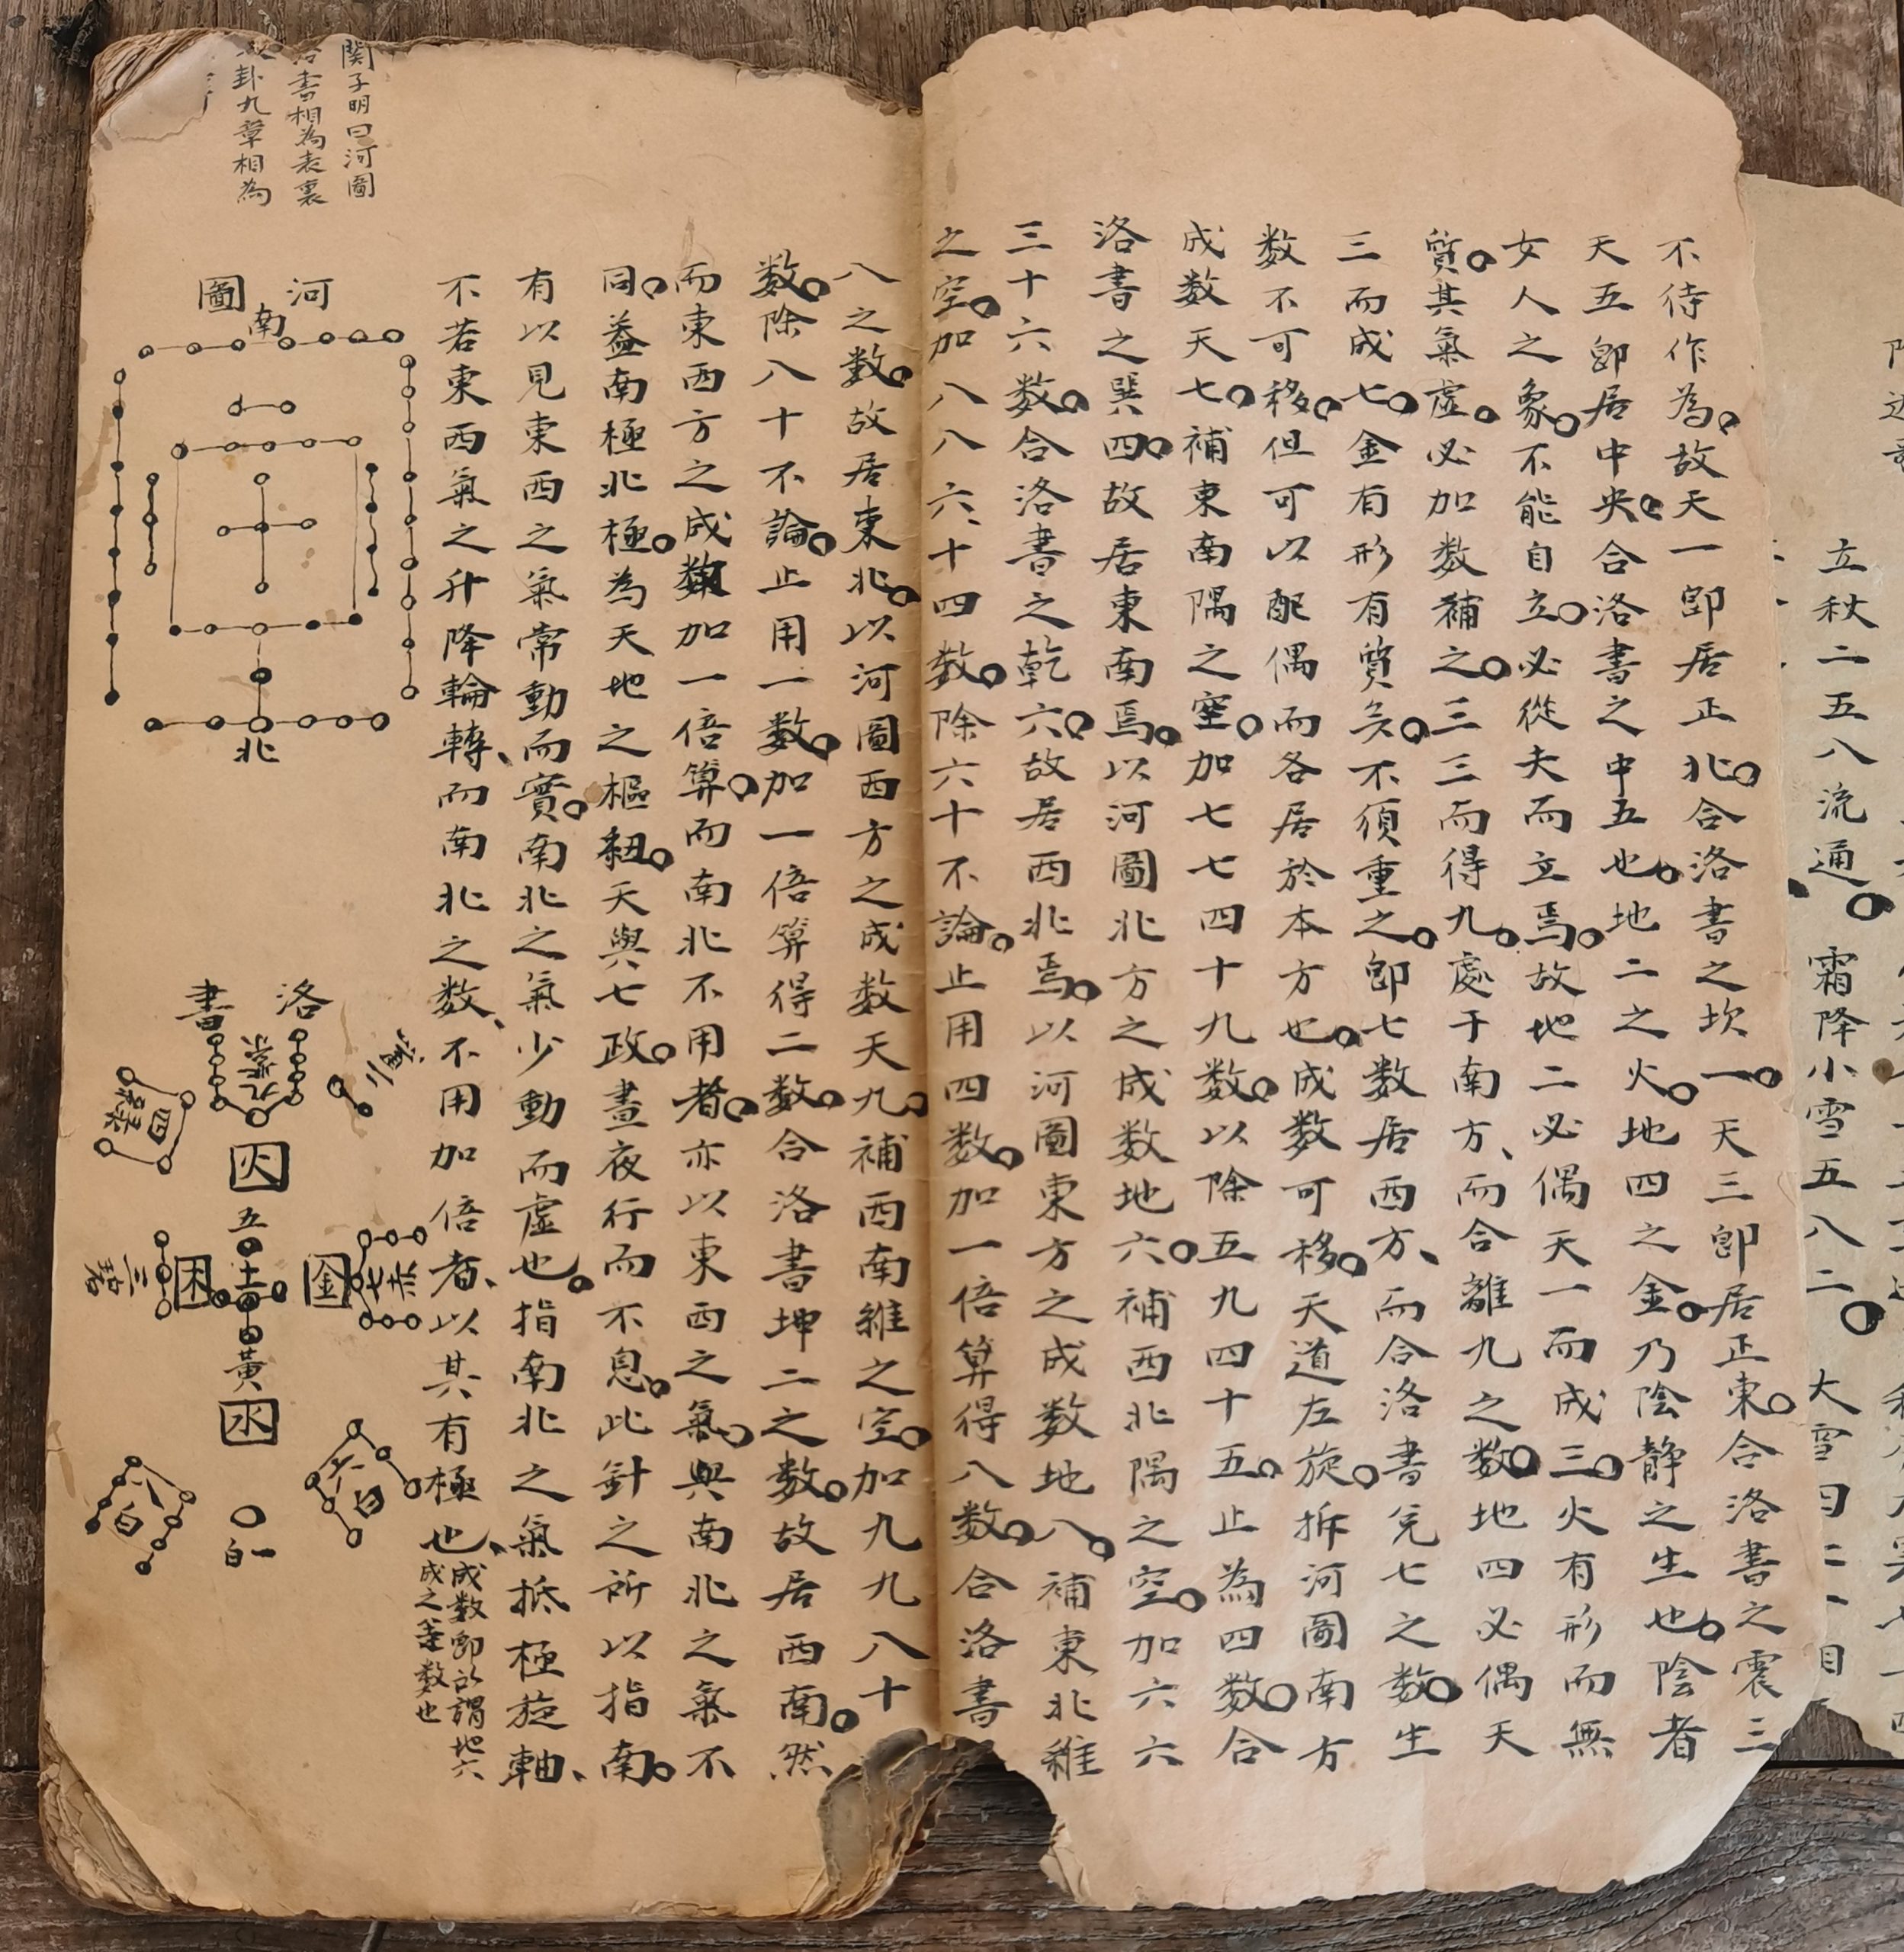 不待作為故天一卽居正北合洛書之坎一天三卽居正東合洛書之震三
天五卽居中央合洛書之中五也地二之火地四之金乃陰静之生也陰者
女人之象不能自立必從夫而立焉故地二必偶天一而成三火有形而無
質其氣虛必加数補之三三三而得九處于南方而合離九之数地四必偶天
三而成七金有形有質矣不須重之卽七数居西方而合洛書兌七之数生
数不可移但可以配偶而各居於本方也成数可移天道左旋拆河圖南方
成数天七補東南隅之空加七七四十九数以除五九四十五止為四数合
洛書之巽四故居東南焉以河圖北方之成数地六補西北隅之空加六六
三十六数合洛書之乾六故居西北焉以河圖東方之成数地八補東北維
之空加八八六十四数除六十不論止用四数加一倍算得八数合洛書
八之数故居東北以河圖西方之成数天九補西南維之空加九九八十
数除八十不論止用一数加一倍算得二数合洛書坤二之数故居西南然
而東西方之成数加一倍算而南北不用者亦以東西之氣與南北之氣不
同葢南極北極為天地之樞紐天與七政晝夜行而不息此針之所以指南
有以見東西之氣常動而實南北之氣少動而虛也指南北之氣抵極旋軸
不若東西氣之升降輪轉而南北之数不用加倍者以其有極也
成数卽所謂地六
成之等数也
關子明曰河圖
書相為表裏
卦九章相為
河圖
南
北
洛書
九紫
四綠
火
五
土
黃
三碧
木
金
七赤
水
六白
八白
一白
立秋二五八流通 霜降小雪五八二 大雪四二一目